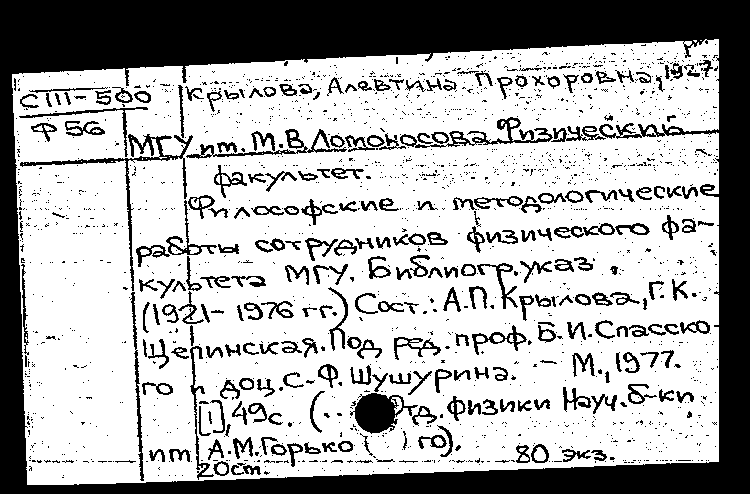 Крылова, Алевтина Прохоровна, 1927
СIII-500
Ф 56
МГУ им. М.В.Ломоносова. Физический
факультет.
Философские и методологические
работы сотрудников физического фа-
культета МГУ. Библиогр. указ.
(1921-1976 гг.) Сост.: А.П.Крылова, Г.К.
Щепинская. Под ред. проф. Б.И.Спасско-
го и доц. С.Ф.Шушурина. - М., 1977.
[1], 49с. (.. Отд. физики Науч. б-ки
им А.М.Горько го).
20см. 80 экз.